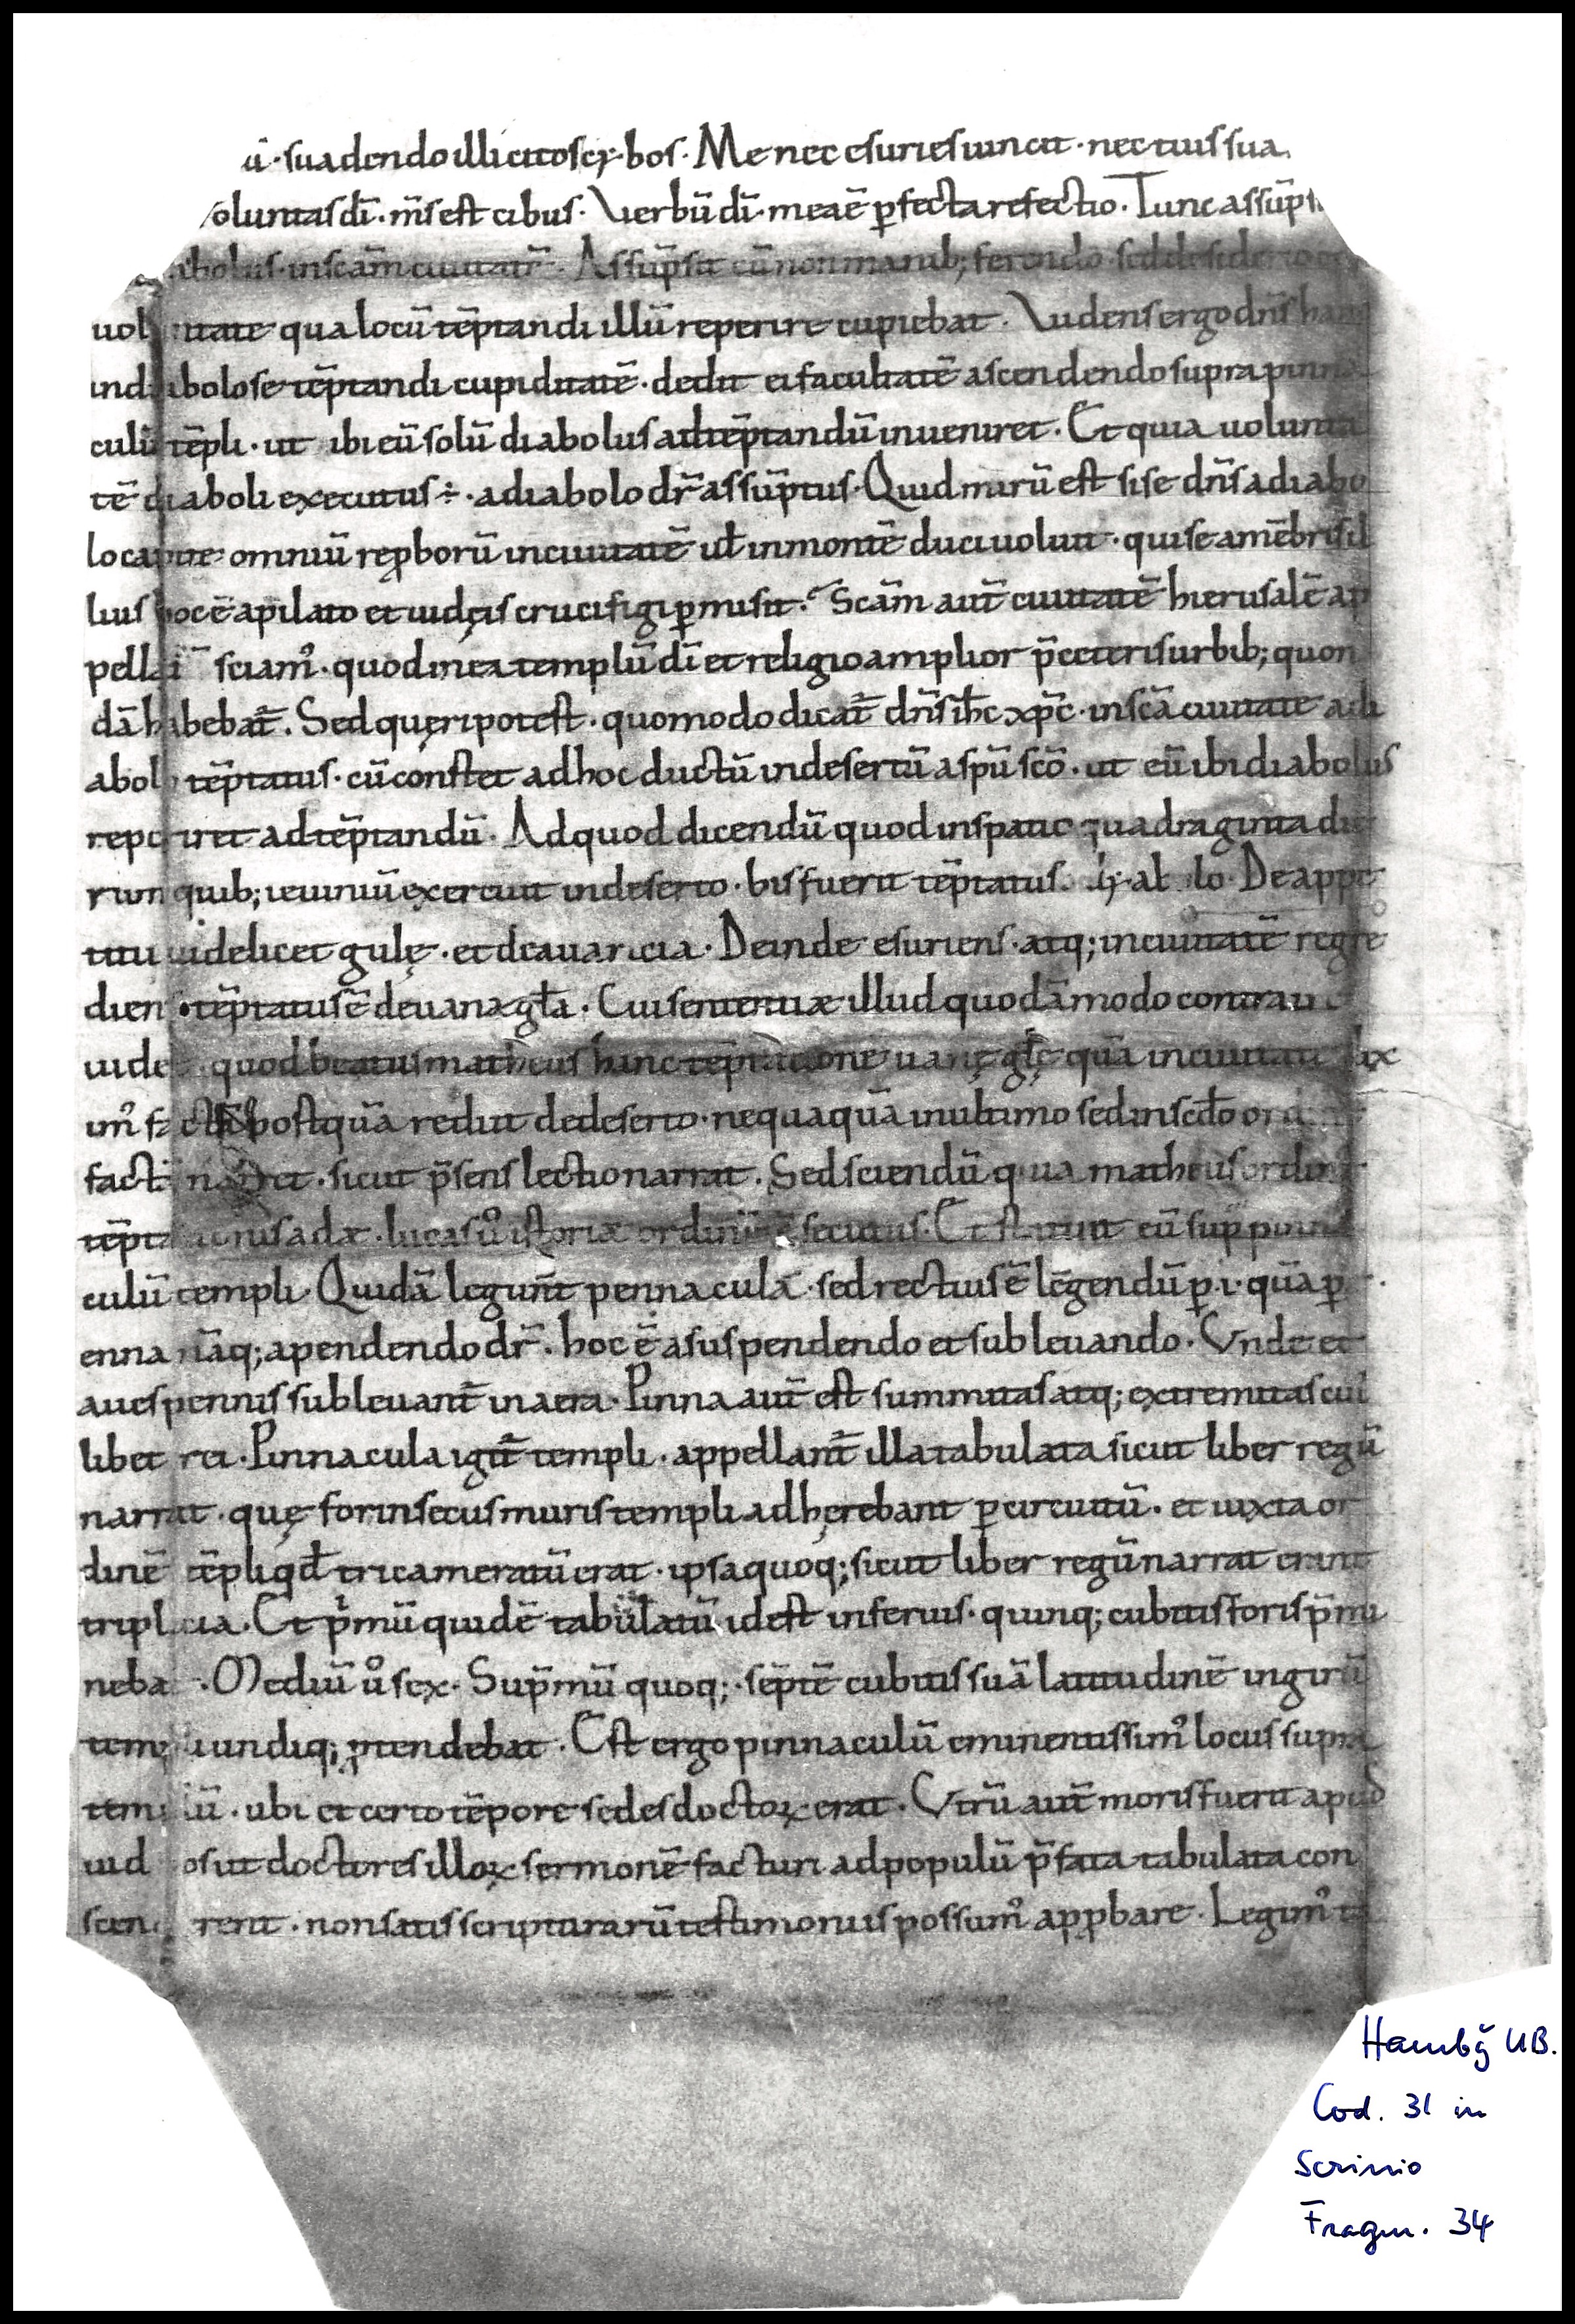 suadendo illicitos cybos. Me nec esuries uincit. nec tuis sua
oluntas dī. m̄s est cibus. Verbū dī. mea ē ꝑfecta refectio. Tunc assūp
abolus. in scām ciuitatē. Assūpsit eū non manib; ferendo. sed desiderio
uol tate qua locū tēptandi illū reperire cupiebat. Videns ergo dn̄s hanc
in diabolo se tēptandi cupiditatē. dedit ei facultatē ascendendo supra pinna
culū tēpli. ut ibi eū solū diabolus ad tēptandū inueniret. Et quia uolunta
tē diaboli executus ÷. a diabolo dr̄ assūptus. Quid mirū est si se dn̄s a diabo
lo capite omniū reꝓborū in ciuitatē ut̄ in montē duci uoluit. qui se a mēbris il
lius hoc ē a pilato et iudęis crucifigi ꝑmisit. Scām aūt ciuitatē hierusalē ap
pella sciam᾽. quod in ea templū dī et religio amplior p̄ceteris urbib; quon
dā habebat᷑. Sed quęri potest. quomodo dicat᷑ dn̄s ih̄c xp̄c. in scā ciuitate a di
abolo tēptatus. cū constet ad hoc ductū in desertū a spū scō. ut eū ibi diabolus
reperiret ad tēptandū. Ad quod dicendū quod in spatio quadraginta die
rum quib; ieiuniū exercuit in deserto. bis fuerit tēptatus. De appe
titu uidelicet gulę. et de auaricia. Deinde esuriens. atq; in ciuitatē regre
diens. tēptatus ē de uana gła. Cui sententiæ illud quodāmodo contrariū
uidet quod beatus matheus hanc tēptatione uanę głę quā in ciuitate dix
im᾽ factā postquā rediit de deserto. nequaquā in ultimo sed in scđo ordine
factā narret. sicut p̄sens lectio narrat. Sed sciendū quia matheus ordinē
tēptationis ad æ. lucas ů istoriæ ordinē ē secutus. Et statuit eū sup̄ pinna
culū templi. Quidā legunt̄ pennacula. sed rectius ē legendū ꝑ .i. quā ꝑ .e.
enna nāq; a pendendo dr̄. hoc ē a suspendendo et subleuando. Vnde et
aues pennis subleuant᷑ in aera. Pinna aūt est summitas atq; extremitas cui
libet rei. Pinnacula igit᷑ templi. appellant᷑ illa tabulata sicut liber regū
narrat. quę forinsecus muris templi adhęrebant ꝑ circuitū. et iuxta or
dinē tēpli qđ tricameratū erat. ipsa quoq; sicut liber regū narrat erant
triplicia. Et p̄mū quidē tabulatū id est inferius. quinq; cubitis foris p̄mi
neba . Mediū ů sex. Sup̄mū quoq;. sēptē cubitis suā latitudinē in girū
templi undiq; ꝓtendebat. Est ergo pinnaculū eminentissim᾽ locus supra
templū. ubi et certo tēpore sedes doctoꝝ erat. Vtrū aūt moris fuerit apud
iud os ut doctores illoꝝ sermonē facturi ad populū p̄fata tabulata con
scenderent. non satis scripturarū testimoniis possum᾽ apꝓbare. Legim᾽
Hambg̃ UB.
Cod. 31 in
Scrinio
Fragm. 34